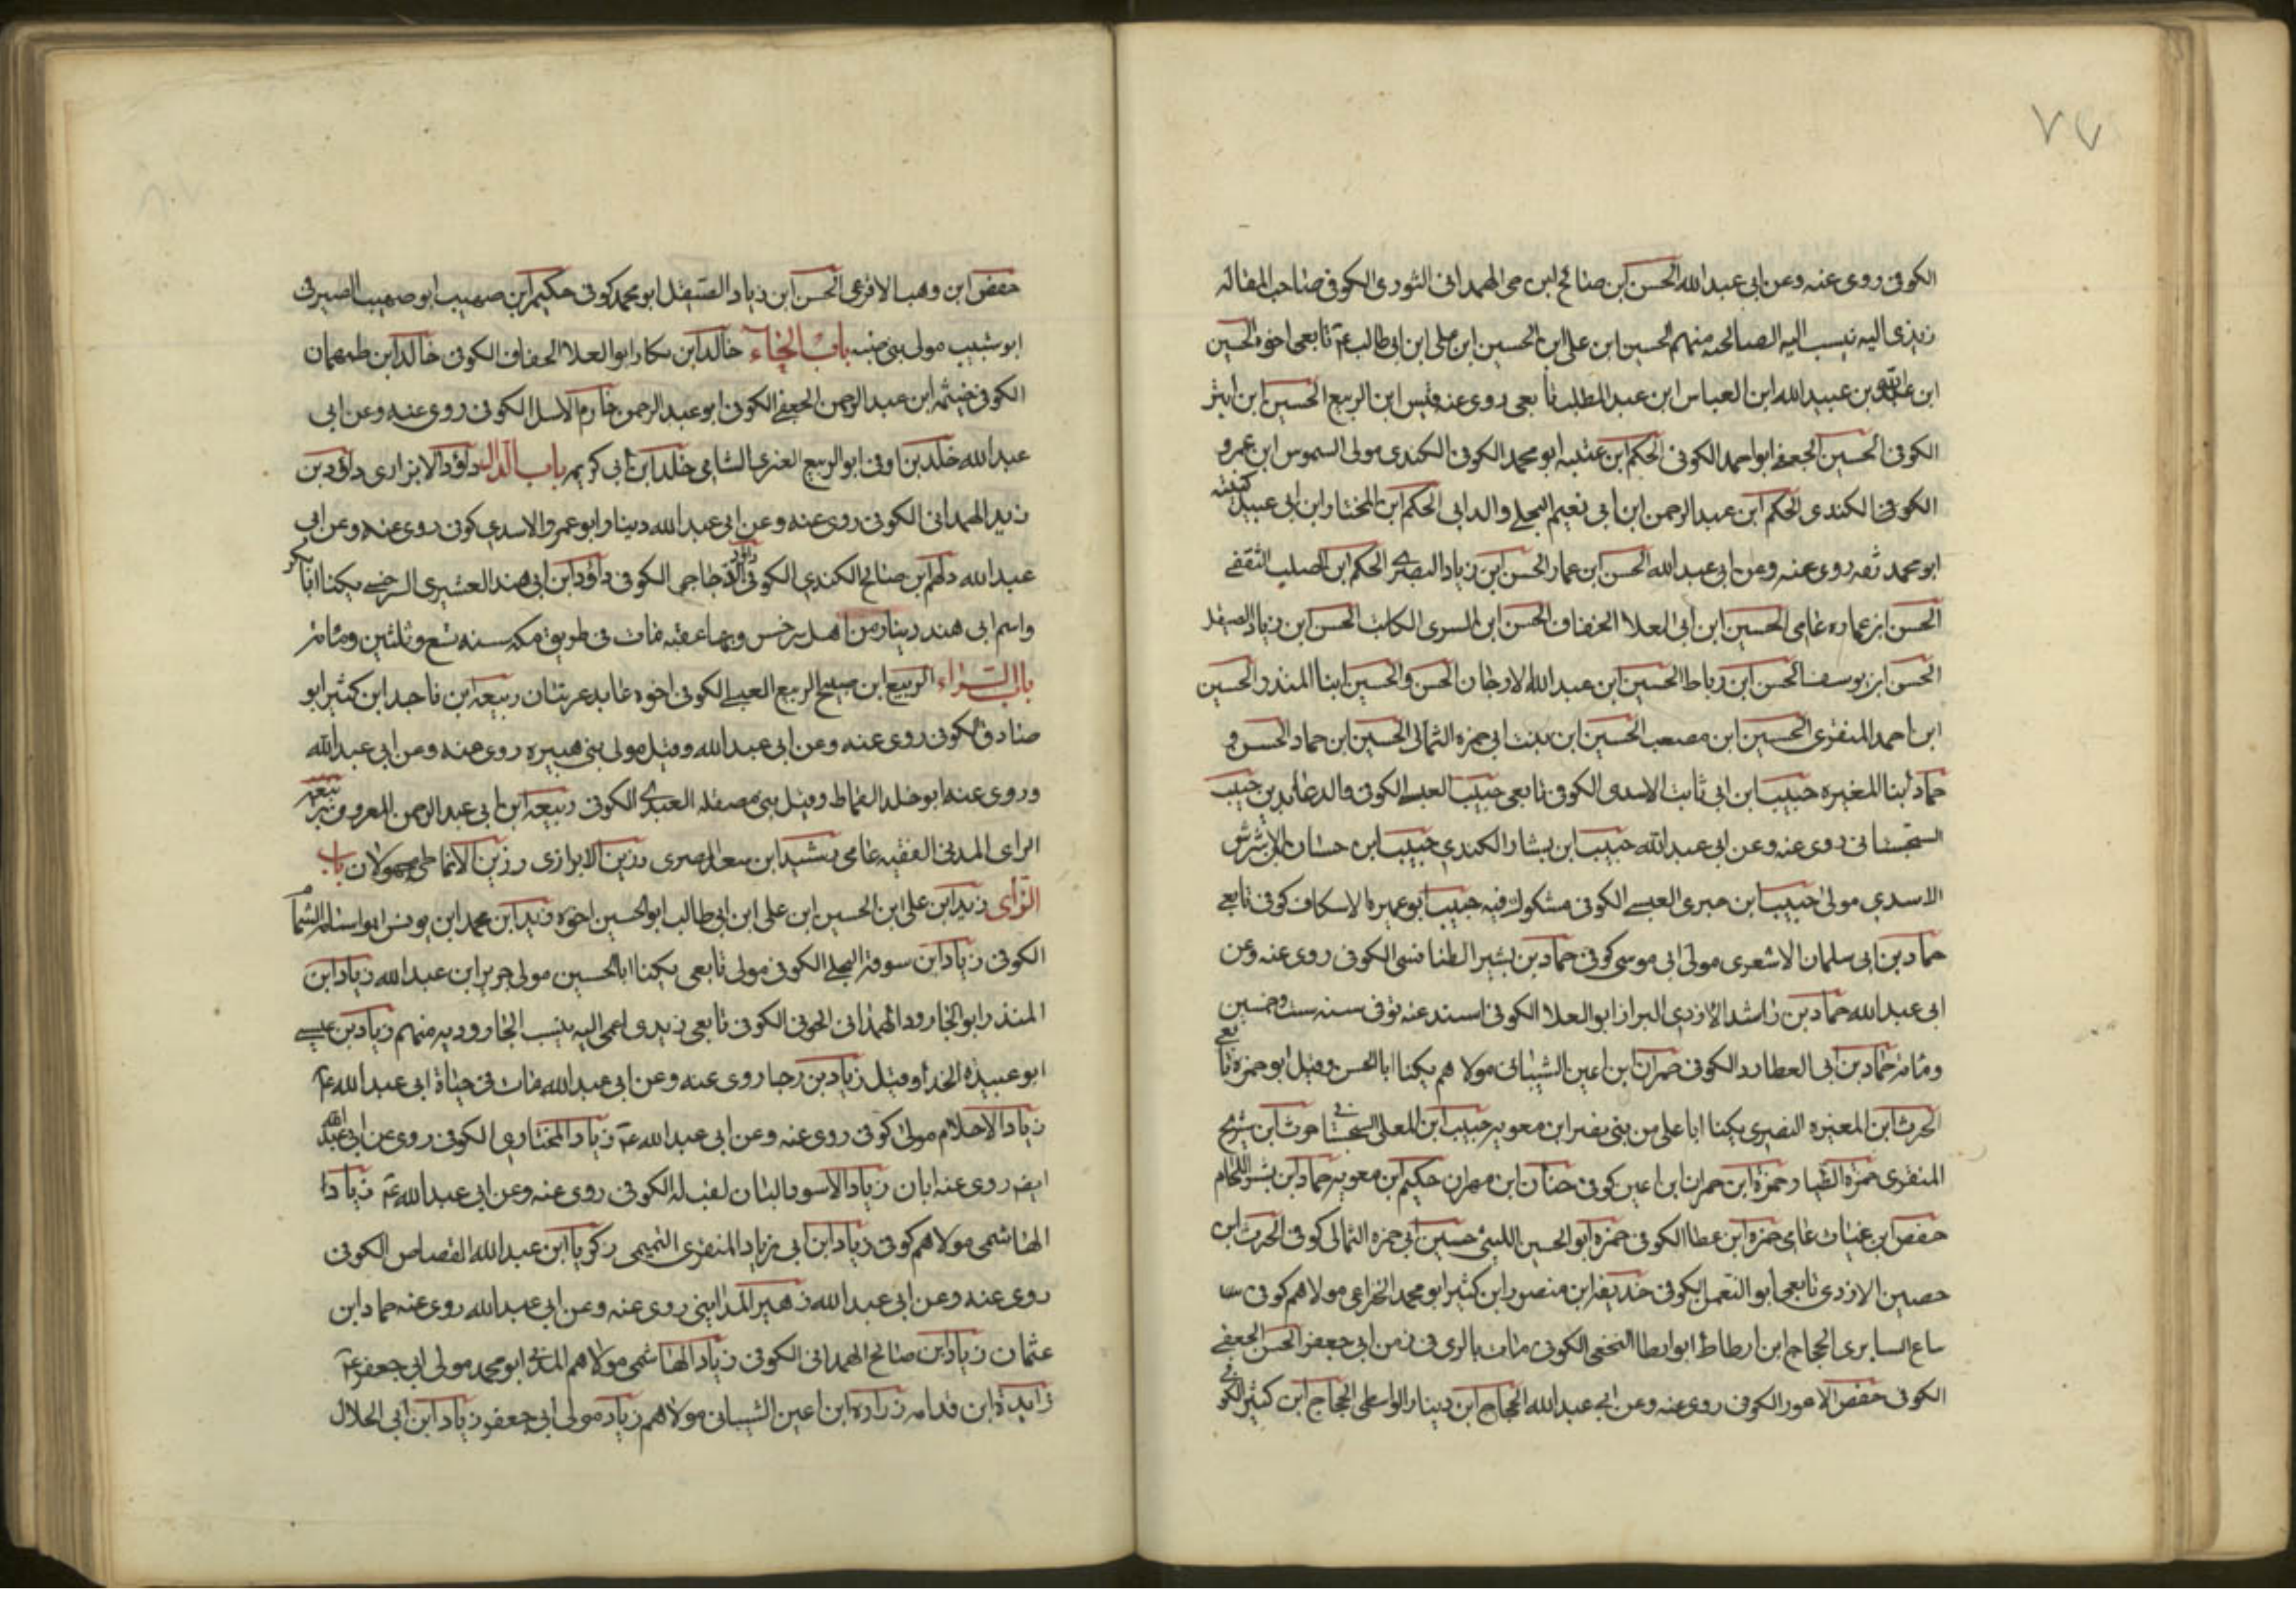 ٧٧
الكوفى روى عنه وعن ابى عبدالله الحسن ابن صالح ابن حى الهمدانى الثورى الكوفى صاحب المقاله
زيدى اليه نيسب اليه الصالحيه منهم الحسين ابن على ابن الحسين ابن على ابن ابى طالب ع تابعى اخوه الحسين
ابن عبدالله بن عبيد الله ابن العباس ابن عبد المطلب تابعى روى عنه قيس ابن الربيع الحسين ابن ابتر
الكوفى الحسين الجعفى ابو احمد الكوفى الحكم ابن عتيبه ابو محمد الكوفى الكندى مولى السموس ابن عمرو
الكوفى الكندى الحكم ابن عبد الرحمن ابن ابى نعيم البجلى والد ابى الحكم ابن المختار ابن ابى عبيد كنيته
ابو محمد ثقه روى عنه وعن ابى عبدالله الحسن ابن عمار الحسن ابن زياد البصرى الحكم ابن الصلب الثقفى
الحسن ابن عماره عامى الحسين ابن ابى العلا الخفاف الحسن ابن السرى الكاتب الحسن ابن زياد الصيقل
الحسن ابن يوسف الحسن ابن رباط الحسين ابن عبد الله الارجان الحسن والحسين ابنا المنذر الحسين
ابن احمد المنقرى الحسين ابن مصعب الحسين ابن بنت ابى حمزه الثمالى الحسين ابن حماد الحسن و
حماد ابنا المغيره حبيب ابن ابى ثابت الاسدى الكوفى تابعى حبيب العبسى الكوفى والد عائد بن حبيب
السجستانى روى عنه وعن ابى عبدالله حبيب ابن بشار الكندى حبيب ابن حسان ابن الاشرش
الاسدى مولى حبيب ابن جبرى العبسى الكوفى مشكوك فيه حبيب ابو عميره الاسكاف كوفى تابعى
حماد بن ابى سليمان الاشعرى مولى ابى موسى كوفى حماد بن بشير الطنافسى الكوفى روى عنه وعن
ابى عبد الله حماد بن راشد الازدى البزاز ابو العلا الكوفى اسند عنه توفى سنه ست وخمسين
ومائه حماد بن ابى العطارد الكوفى حمران ابن اعين الشيبانى مولاهم يكنا ابا الحسن وقيل ابو حمزه تابعى
الحرث ابن المغيره النصرى يكنا ابا على من بنى نصر ابن معويه حبيب ابن المعلى السجستانى حرث ابن شريح
المنقرى حمزه الطيار حمزه ابن حمران ابن اعين كوفى حنان ابن مهران حكيم ابن معويه حماد ابن بشر اللحام
حفص ابن غياث عامى حمزه ابن عطا الكوفى حمزه ابو الحسين الليثى حسين ابن ابى حمزه الثمالى كوفى الحرث ابن
حصين الازدى تابعى ابو النعمل الكوفى حذيفه ابن منصور ابن كثير ابو محمد الخزاعى مولاهم كوفى
بياع السابرى الحجاج ابن ارطاط ابو ارطا النخعى الكوفى مات بالرى فى زمن ابى جعفر الحسن الجعفى
الكوفى حفص الاعور الكوفى روى عنه وعن ابى عبدالله الحجاج ابن دينار الواسطى الحجاج ابن كثير الكوفى
حفص ابن وهب الافرعى الحسن ابن زياد الصيقل ابو محمد كوفى حكيم ابن صهيب ابو صهيب الصيرفى
ابو شبيب مولى بنى ضبه باب الخاء خالد ابن بكار ابو العلا الخفاف الكوفى خالد ابن طهمان
الكوفى خيثمه ابن عبد الرحمن الجعفى الكوفى ابو عبد الرحمن خازم الاسل الكوفى روى عنه وعن ابى
عبد الله خلد بن اوفى ابو الربيع العنزى الشامى خلد ابن ابى كريمه باب الدال داود الابزارى داود بن
زيد الهمدانى الكوفى روى عنه وعن ابى عبد الله دينار ابو عمرو الاسدى كوفى روى عنه وعن ابى
عبد الله دلهم ابن صالح الكندى الكوفى داود الدجاجى الكوفى داود ابن ابى هند القشيرى السرخسى يكنا ابا بكر
واسم ابى هند دينار من اهل سرخس وبها عقبه مات فى طريق مكه سنه تسع وثلثين ومائه
باب الراء الربيع ابن صبيح الربيع العبسى الكوفى اخوه عابد عربيان ربيعه ابن ناجد ابن كثير ابو
صادق الكوفى روى عنه وعن ابى عبد الله وقيل مولى بنى هبيره روى عنه وعن ابى عبدالله
وروى عنه ابو خلد القماط وقيل بنى مصقله العبدى الكوفى ربيعه ابن ابى عبد الرحمن المعروف بربيعه
الراى المدنى الفقيه عامى رشيد ابن سعد المصرى رزين الابزارى رزين الانماطى مجهولان باب
الزاى زيد ابن على ابن الحسين ابن على ابن ابى طالب ابو الحسين اخوه زيد ابن محمد ابن يونس ابو اسامه الشحام
الكوفى زياد ابن سوقه البجلى الكوفى مولى تابعى يكنا ابا الحسين مولى جرير ابن عبد الله زياد ابن
المنذر ابو الجارود الهمدانى الحوفى الكوفى تابعى زيدى اعمى اليه ينسب الجاروديه منهم زياد بن عيسى
ابو عبيده الحذاء وقيل زياد بن رجا روى عنه وعن ابى عبد الله مات فى حياة ابى عبد الله ع
زياد الاحلام مولى كوفى روى عنه وعن ابى عبد الله ع زياد المختارى الكوفى روى عن ابى عبدالله
ايضه روى عنه ابان زياد الاسود البنان لقب له الكوفى روى عنه وعن ابى عبد الله ع زيادا
الهاشمى مولاهم كوفى زياد ابن ابى زياد المنقرى التميمى زكريا ابن عبد الله القصاص الكوفى
روى عنه وعن ابى عبد الله زهير المداينى روى عنه وعن ابى عبد الله روى عنه حماد ابن
عثمان زياد ابن صالح الهمدانى الكوفى زياد الهاشمى مولاهم المدنى ابو محمد مولى ابى جعفر ع
زايدة ابن قدامه زراره ابن اعين الشيبانى مولاهم زياد مولى ابى جعفر زياد ابن ابى الحلال